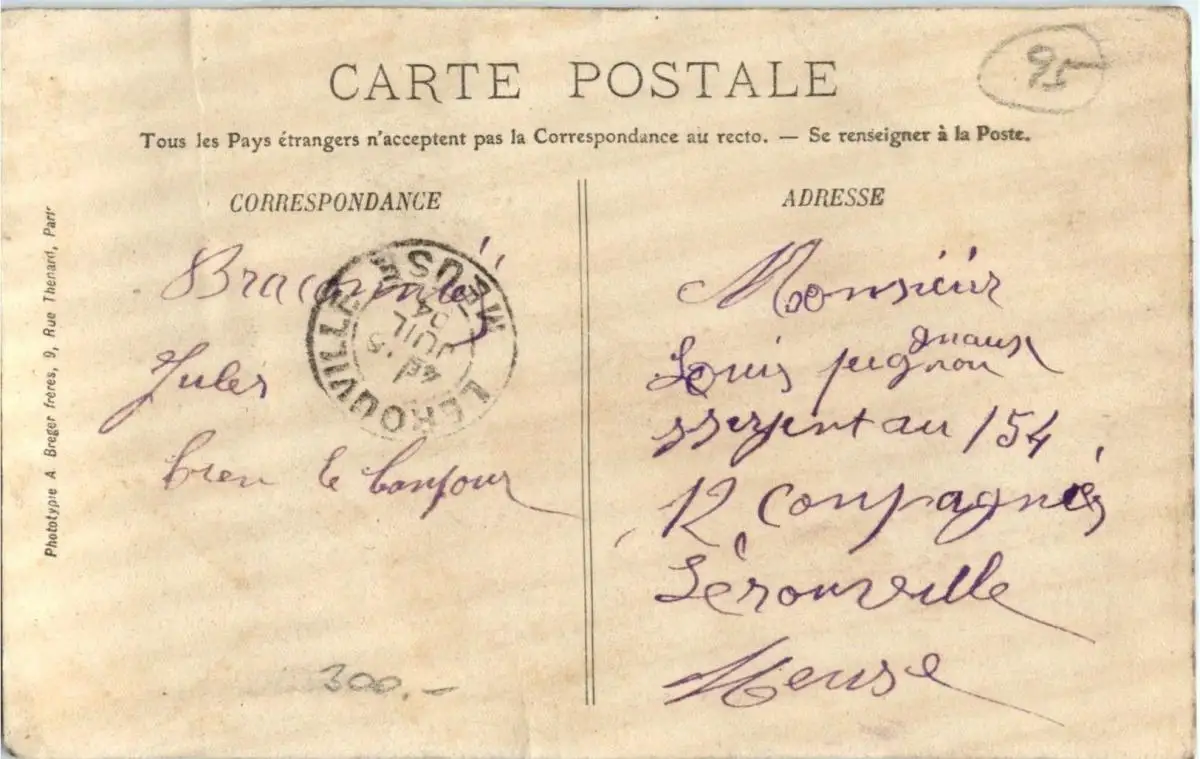 95
CARTE POSTALE
Tous les Pays étrangers n'acceptent pas la Correspondance au recto. — Se renseigner à la Poste.
CORRESPONDANCE
Jules
bien le bonjour
300.-
LEROUVILLE MEUSE
JUIL
04
ADRESSE
Monsieur
Louis
au 154
12 compagnie
Lérouville
Meuse
Phototypie A Breger frères, 9, Rue Thenard, Paris